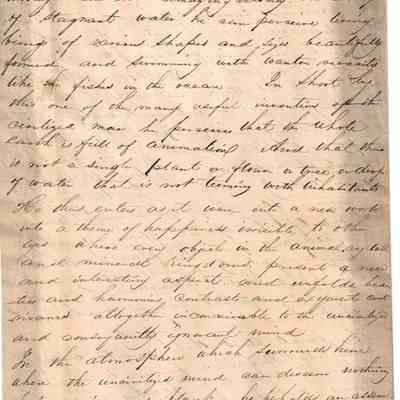 of Stagnant water he can perceive living
beings of various Shapes and sizes beautifully
formed and swimming with wanton vivacity
like fishes in the ocean In Short by
this one of the many useful inventions of the
civilized man he perceives that the whole
earth is full of animation And that there
is not a single plant or flower a tree or drop
of water that is not teeming with Inhabitants
He thus enters as it were into a new world
into a theme of happiness invisible to other
eyes where every object in the animal
and mineral kingdoms present a new
and interesting aspect and unfolds beau
ties and harmonies contrasts and exquisite cont
rivances altogether inconceivable to the
and consequently ignorant mind
In the atmosphere which surrounds him
where the mind can discern nothing
he beholds an